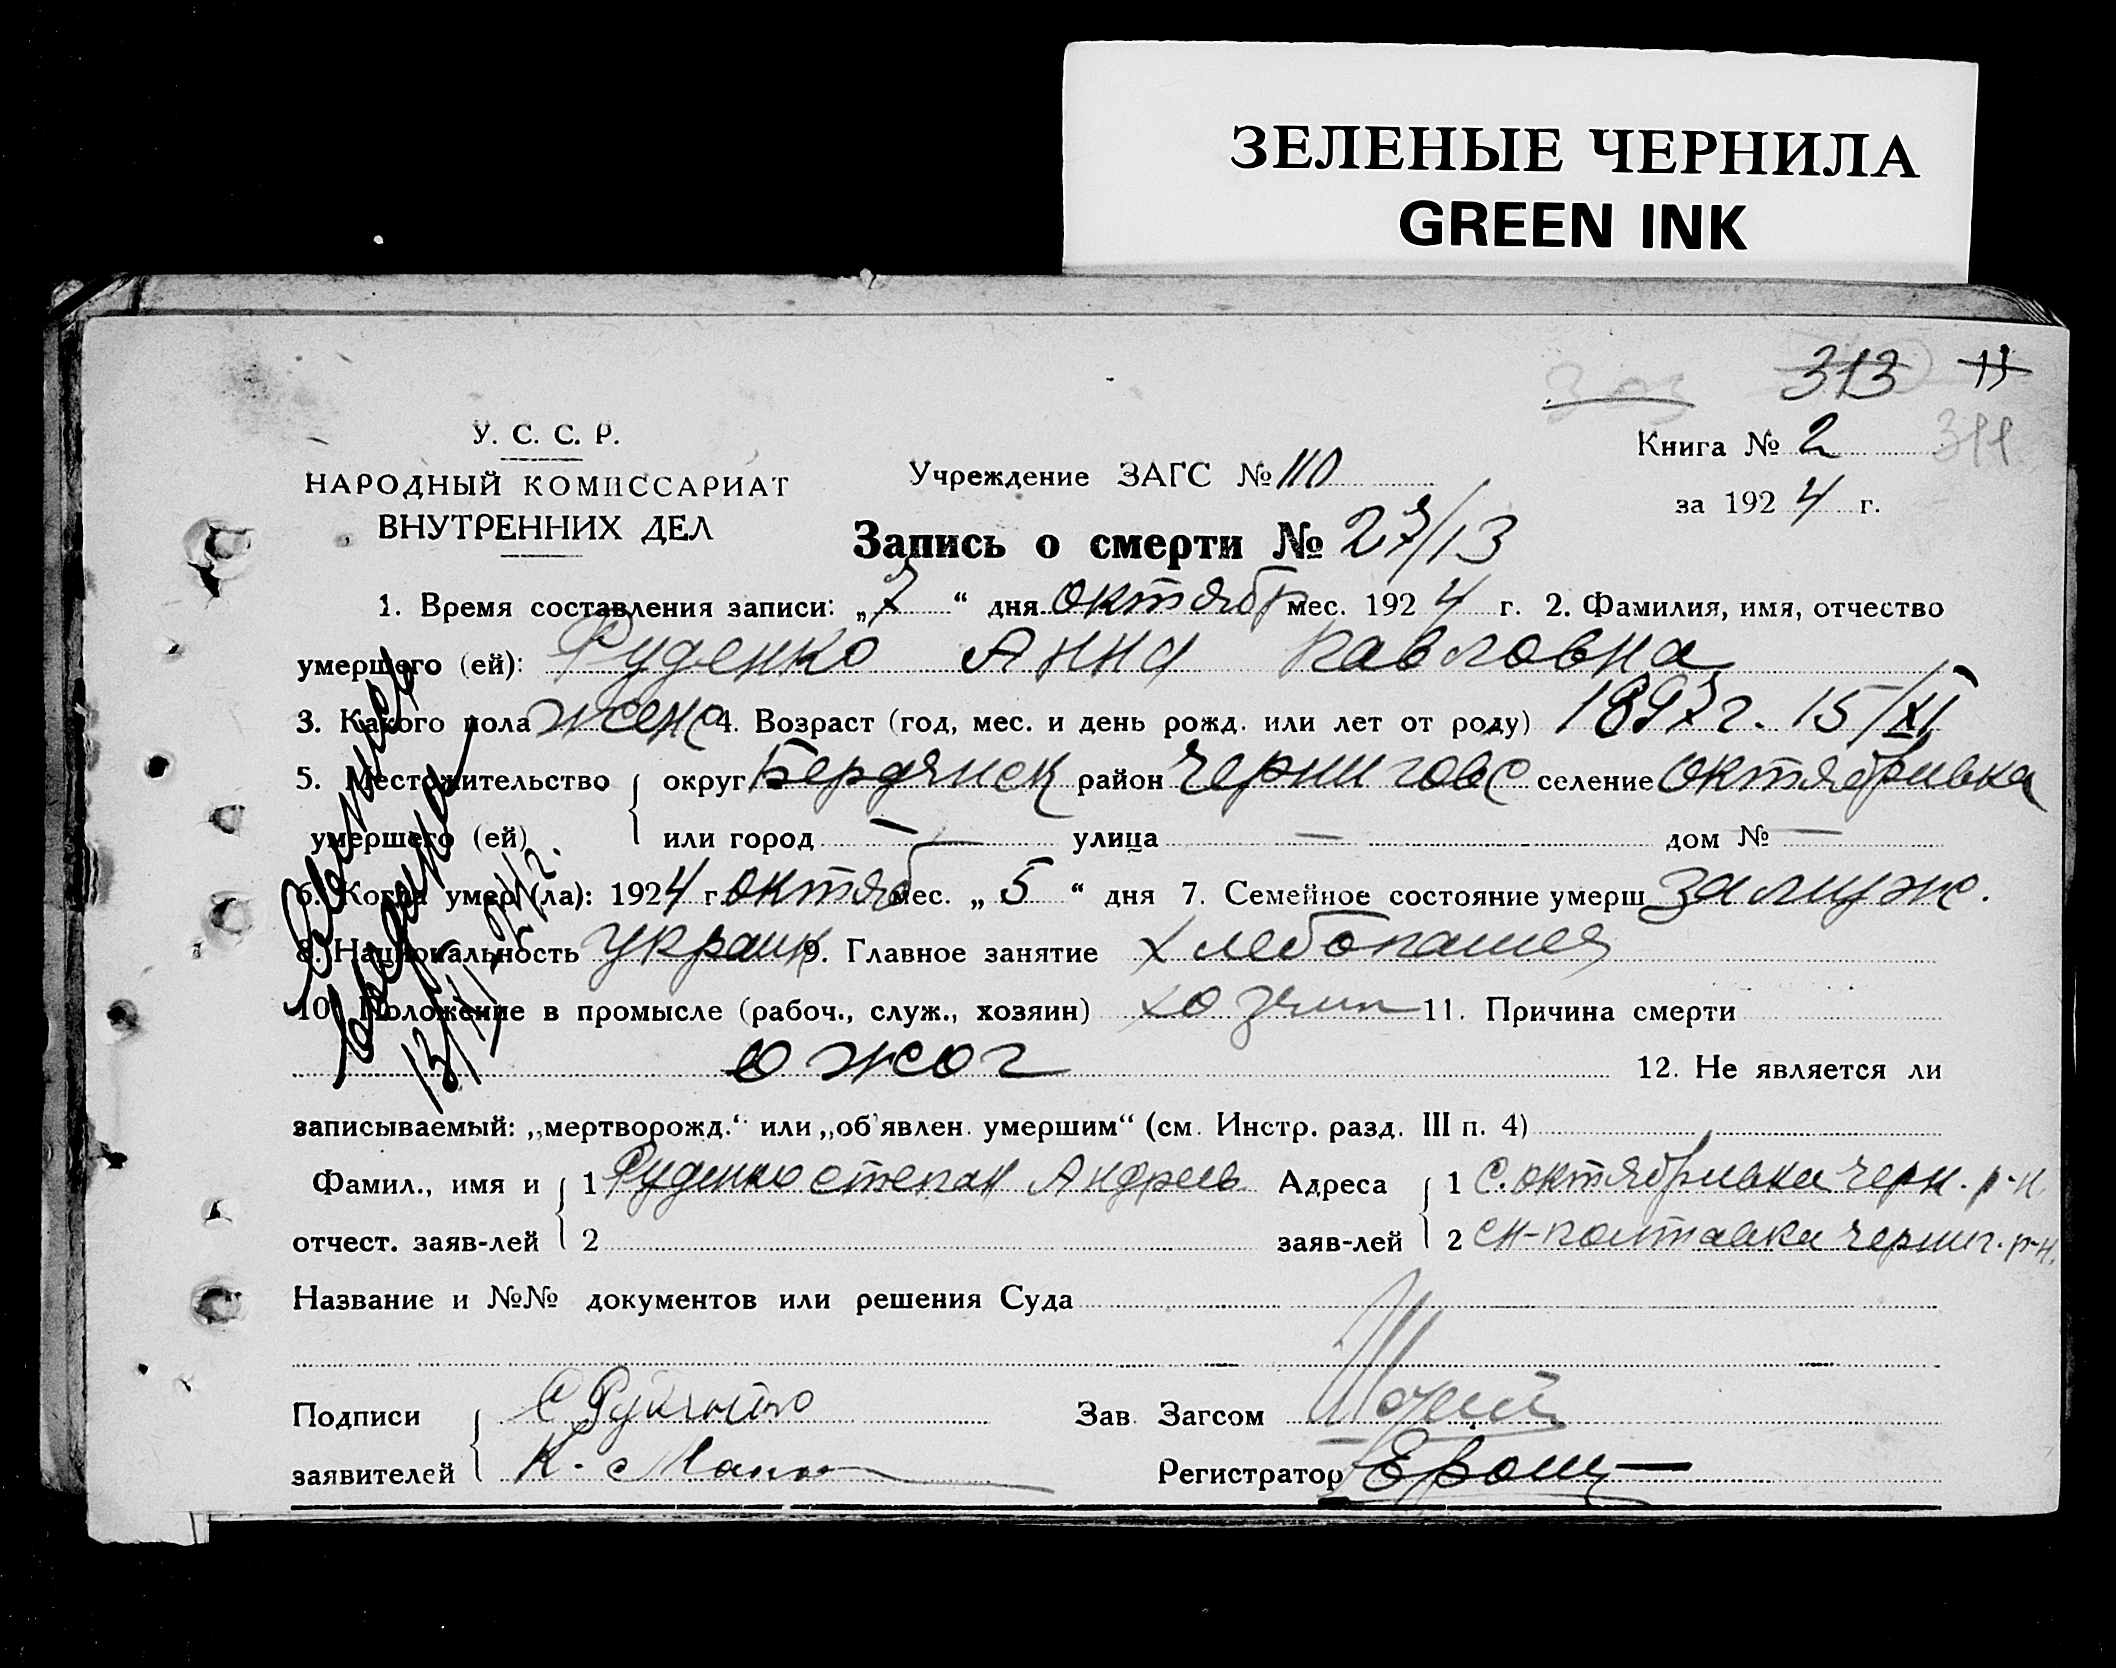 ЗЕЛЕНЫЕ ЧЕРНИЛА
GREEN INK
303 313 11
У. С. С. Р.
НАРОДНЫЙ КОМИССАРИАТ
ВНУТРЕННИХ ДЕЛ
Учреждение ЗАГС № 110
Книга № 2 311
за 1924 г.
Запись о смерти № 27/13
1. Время составления записи: „7“ дня октябр мес. 1924 г. 2. Фамилия, имя, отчество
умершего (ей): Руденко Анна Павловна
3. Какого пола женс 4. Возраст (год, мес. и день рожд. или лет от роду) 1897 г. 15/XI
5. Местожительство округ Бердянск район Черниговс селение Октябривка
умершего (ей) или город — улица — дом № —
6. Когда умер (ла): 1924 г. октяб мес. „5“ дня 7. Семейное состояние умерш замуж.
8. Национальность украин 9. Главное занятие хлебопашец
10. Положение в промысле (рабоч., служ., хозяин) хозяин 11. Причина смерти
ожог 12. Не является ли
записываемый: „мертворожд.“ или „об'явлен. умершим“ (см. Инстр. разд. III п. 4)
Фамил., имя и 1 Руденко Степан Андреев Адреса 1 с. Октябривка Черн. р-н.
отчест. заяв-лей 2 заяв-лей 2 Н-Полтавка Черниг. р-н.
Название и №№ документов или решения Суда
Подписи С Руденко Зав. Загсом
заявителей К. Регистратор Ерош